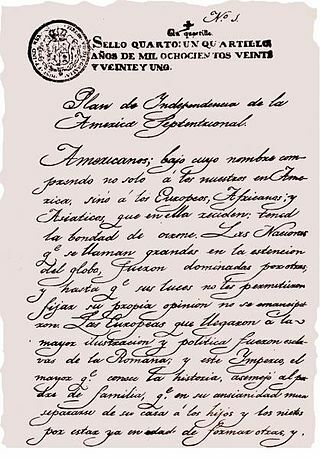 No. 1.
Un quartillo
SELLO QUARTO: UN QUARTILLO,
AÑOS DE MIL OCHOCIENTOS VEINTE
Y VEINTE Y UNO.
Plan de Independencia de la
America Septentrional.
Americanos; bajo cuyo nombre com-
prendo no solo á los nuestros en Ame-
rica, sinó á los Europeos, Africanos, y
Asiaticos, que en ella reciden: tened
la bondad de oirme. Las Naciones
q.e se llaman grandes en la estencion
del globo, fueron dominadas por otras;
y hasta q.e sus luces no les permitieron
fijar su propia opinion no se emancipa-
ron. Las Europeas que llegaron a la
mayor ilustracion y politica fueron escla-
vas de la Romana; y este Imperio, el
mayor q.e conoce la historia, asemejó al pa-
dre de familia, q.e en su ancianidad mira
separarse de su casa á los hijos y los nietos
por estar ya en edad de formar otras, y